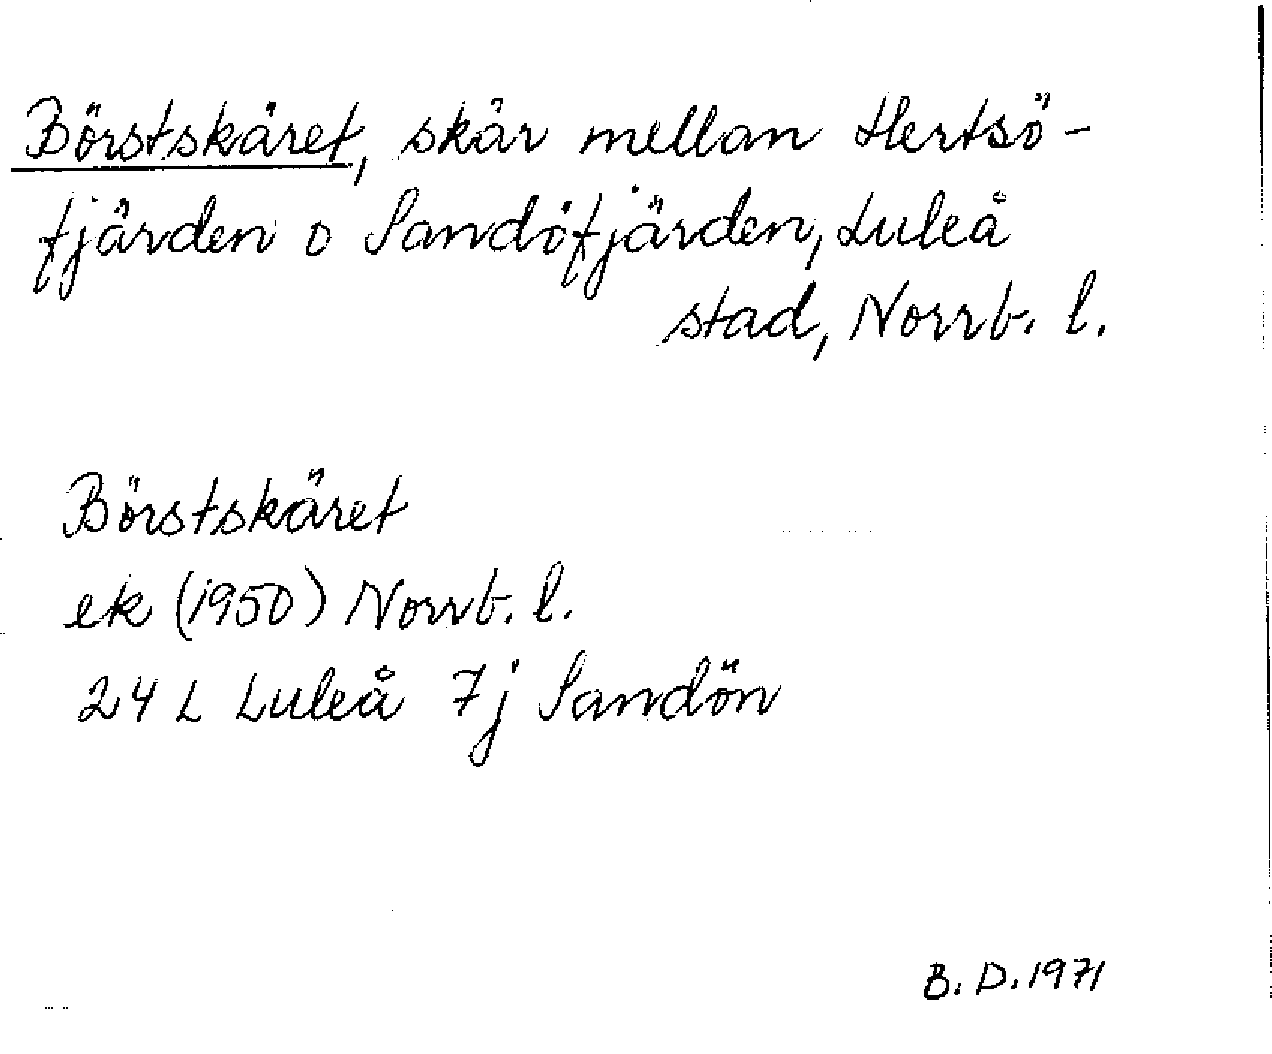 Börstskäret, skär mellan Hertsö-
fjärden o Sandöfjärden, Luleå
stad, Norrb. l.
Börstskäret
ek (1950) Norrb. l.
24 L Luleå 7j Sandön
B. D. 1971